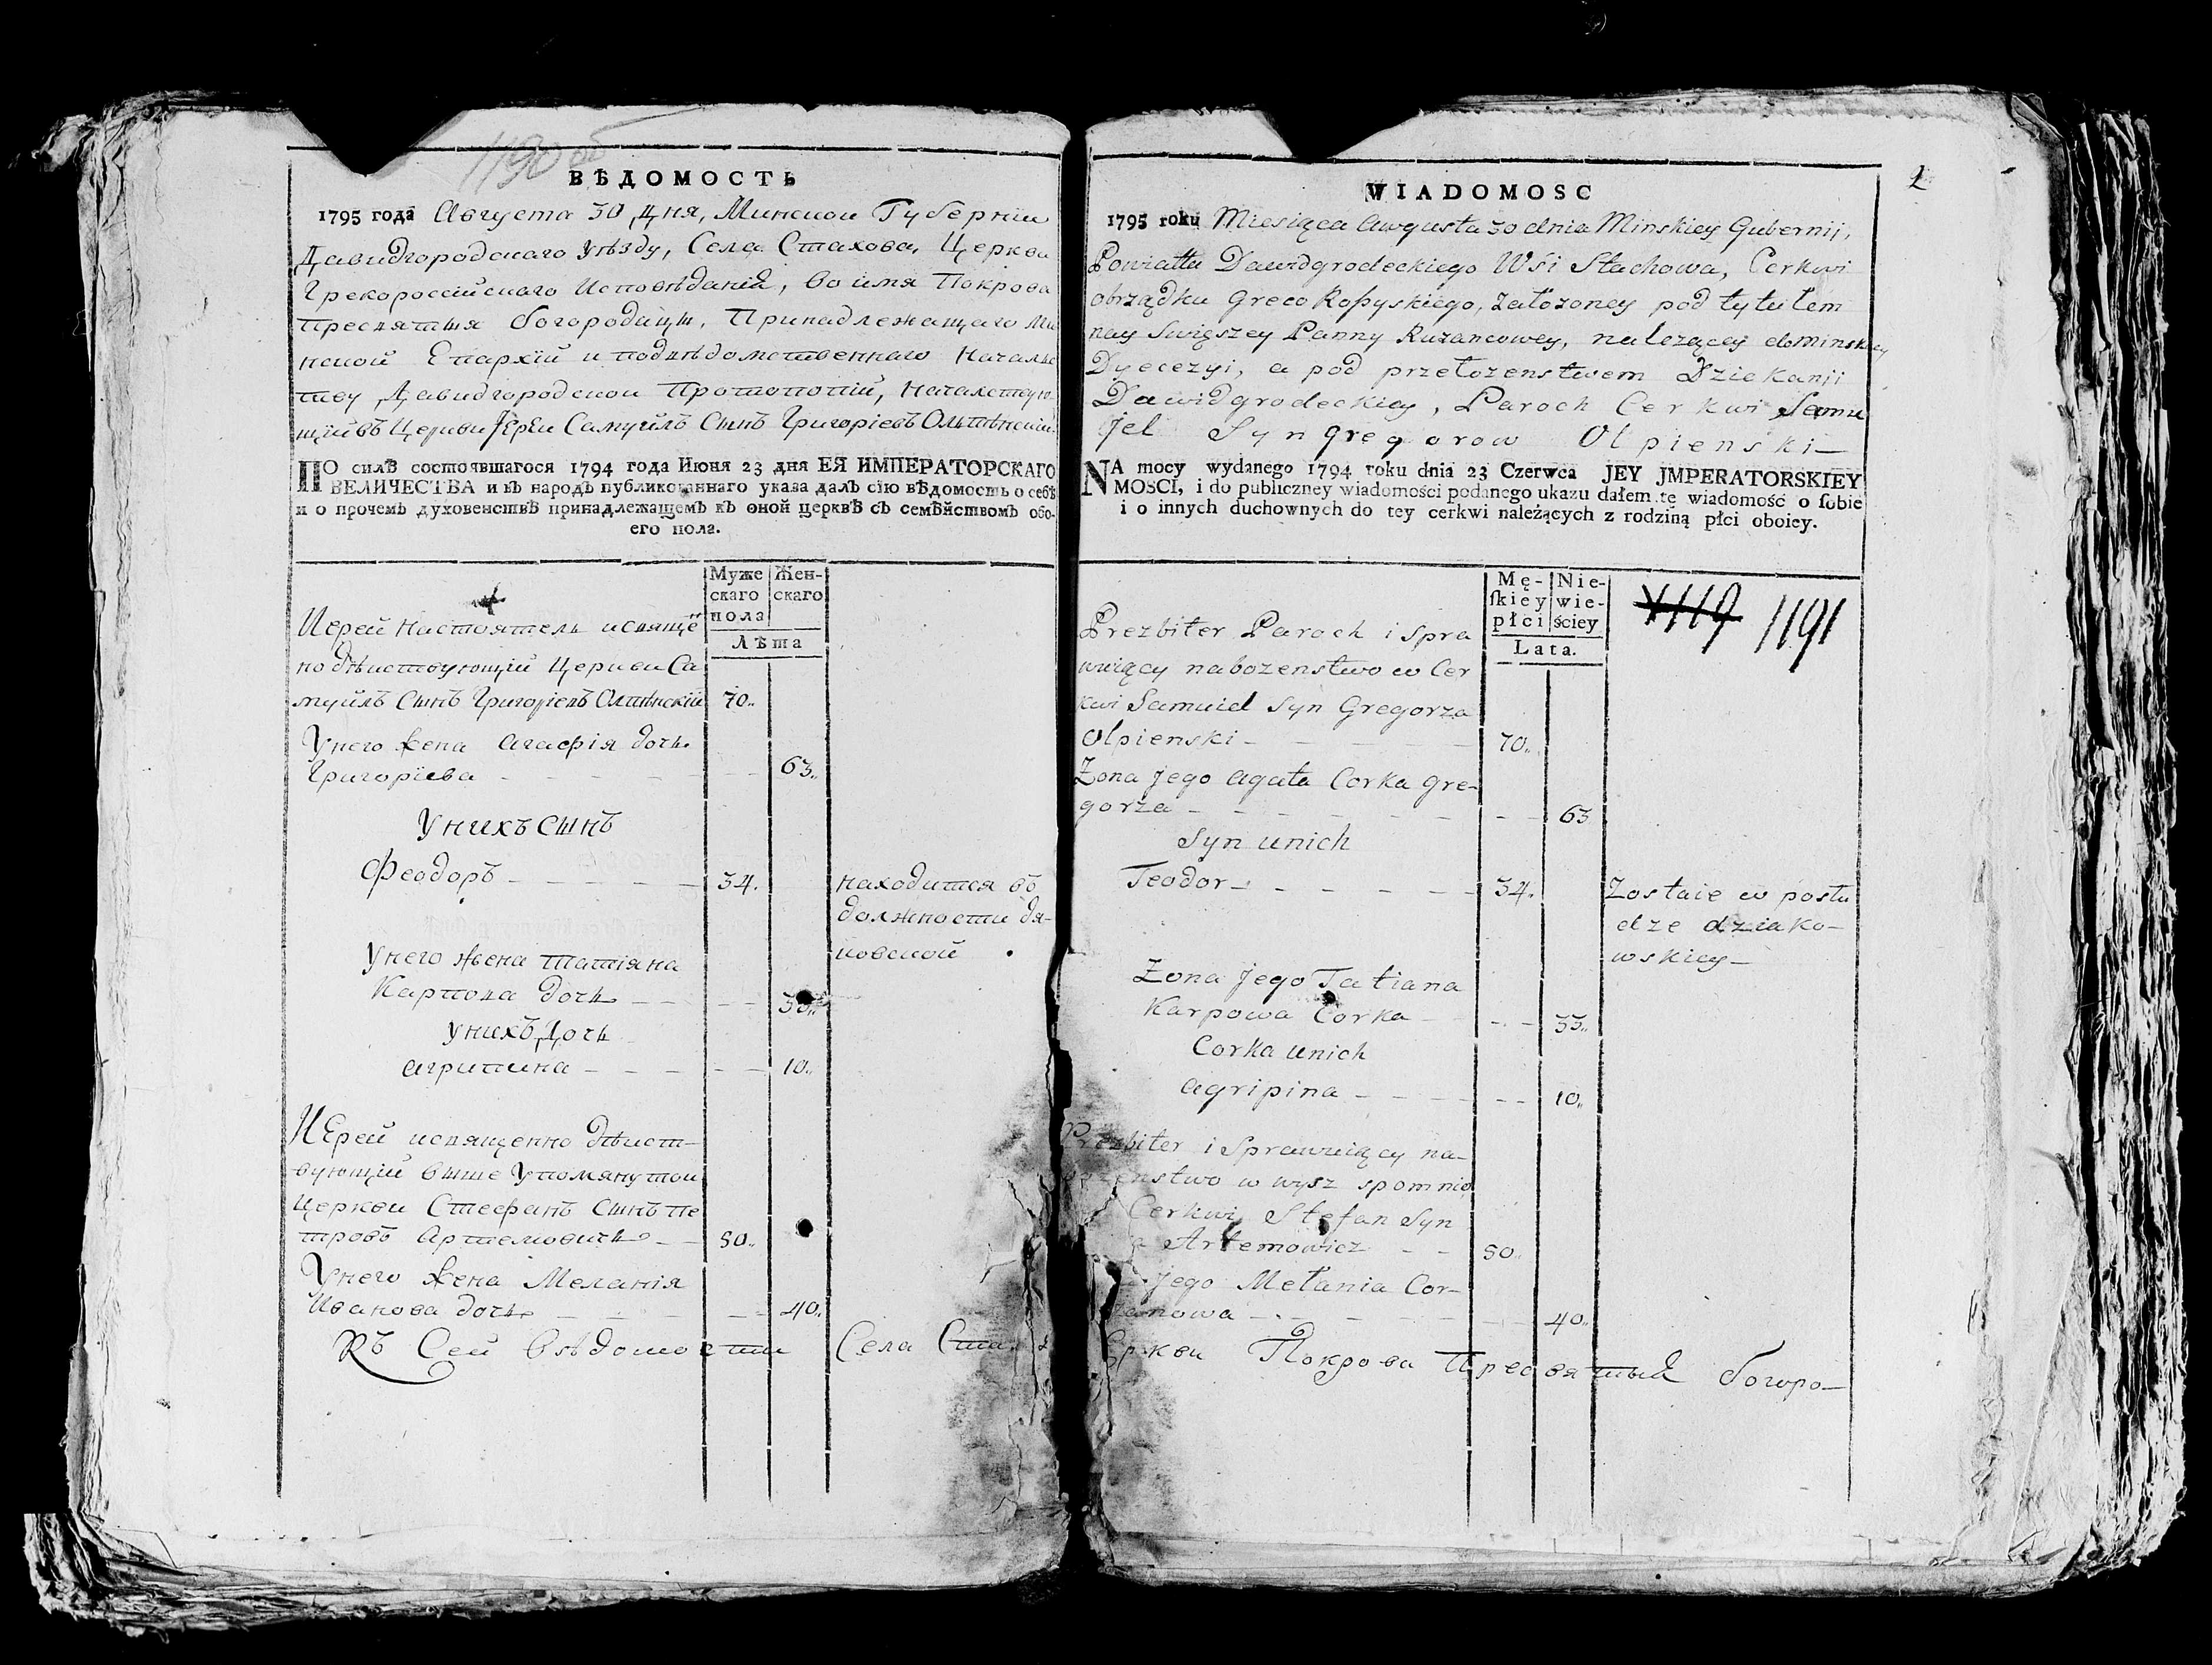 1190 об
ВѢДОМОСТЬ
1795 года Августа 30 Дня, Минской Губерніи
Давидгородскаго Уѣзду, Села Стахова, Церкви
Грекороссійскаго Исповѣданія, во имя Покрова
Пресвятыя богородицы, Принадлежащаго Ми
нской Епархіи и подвѣдомственнаго Началь
тву Давидгородской Протопопіи, Началствую
щій въ Церкви Іерей Самуилъ Сынъ Григоріевъ Олпѣнскій
ПО силѣ состоявшагося 1794 года Июня 23 дня ЕЯ ИМПЕРАТОРСКАГО
ВЕЛИЧЕСТВА и въ народъ публикованнаго указа далъ сїю вѣдомость о себѣ
и о прочемъ духовенствѣ принадлежащемъ къ оной церквѣ съ семѣйствомъ обо-
его пола.
Муже
скаго
пола
Жен-
скаго
Лѣта
Иерей Настоятель исвяще
нодѣиствующій Церкви Са
муилъ Сынъ Григоріевъ Олпѣнскій 70..
Унего жена Агафія дочь
Григоріева 63..
Унихъ сынъ
Феодоръ 34. находится въ
должности дя-
ковской
Унего жена Татіяна
Карпова дочь
унихъ Дочь
Агрипина 10..
Иерей исвященно дѣист-
вующій выше Упомянутои
Церкви Стефанъ Сынъ Пе
тровъ Артемовичь 50..
Унего жена Меланія
Иванова дочь 40..
Къ Сей Вѣдомости Села Ста
WIADOMOSC
1
1795 roku Miesiąca Augusta 30 dnia Minskiey Gubernij,
Powiattu Dawidgrodeckiego Wsi Stachowa, Cerkwi
obrządku Greco Roßyskiego, załozoney pod tytułem
nay Swięszey Panny Ruzancowey, nalezącey do minskiey
Dyecezyi, a pod przełozenstwem Dziekanji
Dawidgrodeckiey, Paroch Cerkwi Samu
jel Syn Gregorow Olpienski
NA mocy wydanego 1794 roku dnia 23 Czerwca JEY JMPERATORSKIEY
MOSCI, i do publiczney wiadomości podanego ukazu dałem tę wiadomość o sobie
i o innych duchownych do tey cerkwi należących z rodziną płci oboiey.
Mę-
skiey
płci
Nie-
wie-
ściey
Lata.
1119 1191
Prezbiter Paroch i Spra
wuiący nabozenstwo w Cer
kwi Samuiel Syn Gregorza
Olpienski 70..
Zona jego Agata Corka Gre-
gorza 63
Syn unich
Teodor 34. Zostaie w posłu
dze dziako-
wskiey
Zona jego Tatiana
Karpowa Corka 33..
Corka unich
Agripina 10..
Prezbiter i Sprawuiący na-
bozenstwo w wysz spomnio
Cerkwi Stefan Syn
Artemowicz 50..
jego Mełania Cor-
40..
Церкви Покрова Пресвятыя богоро-